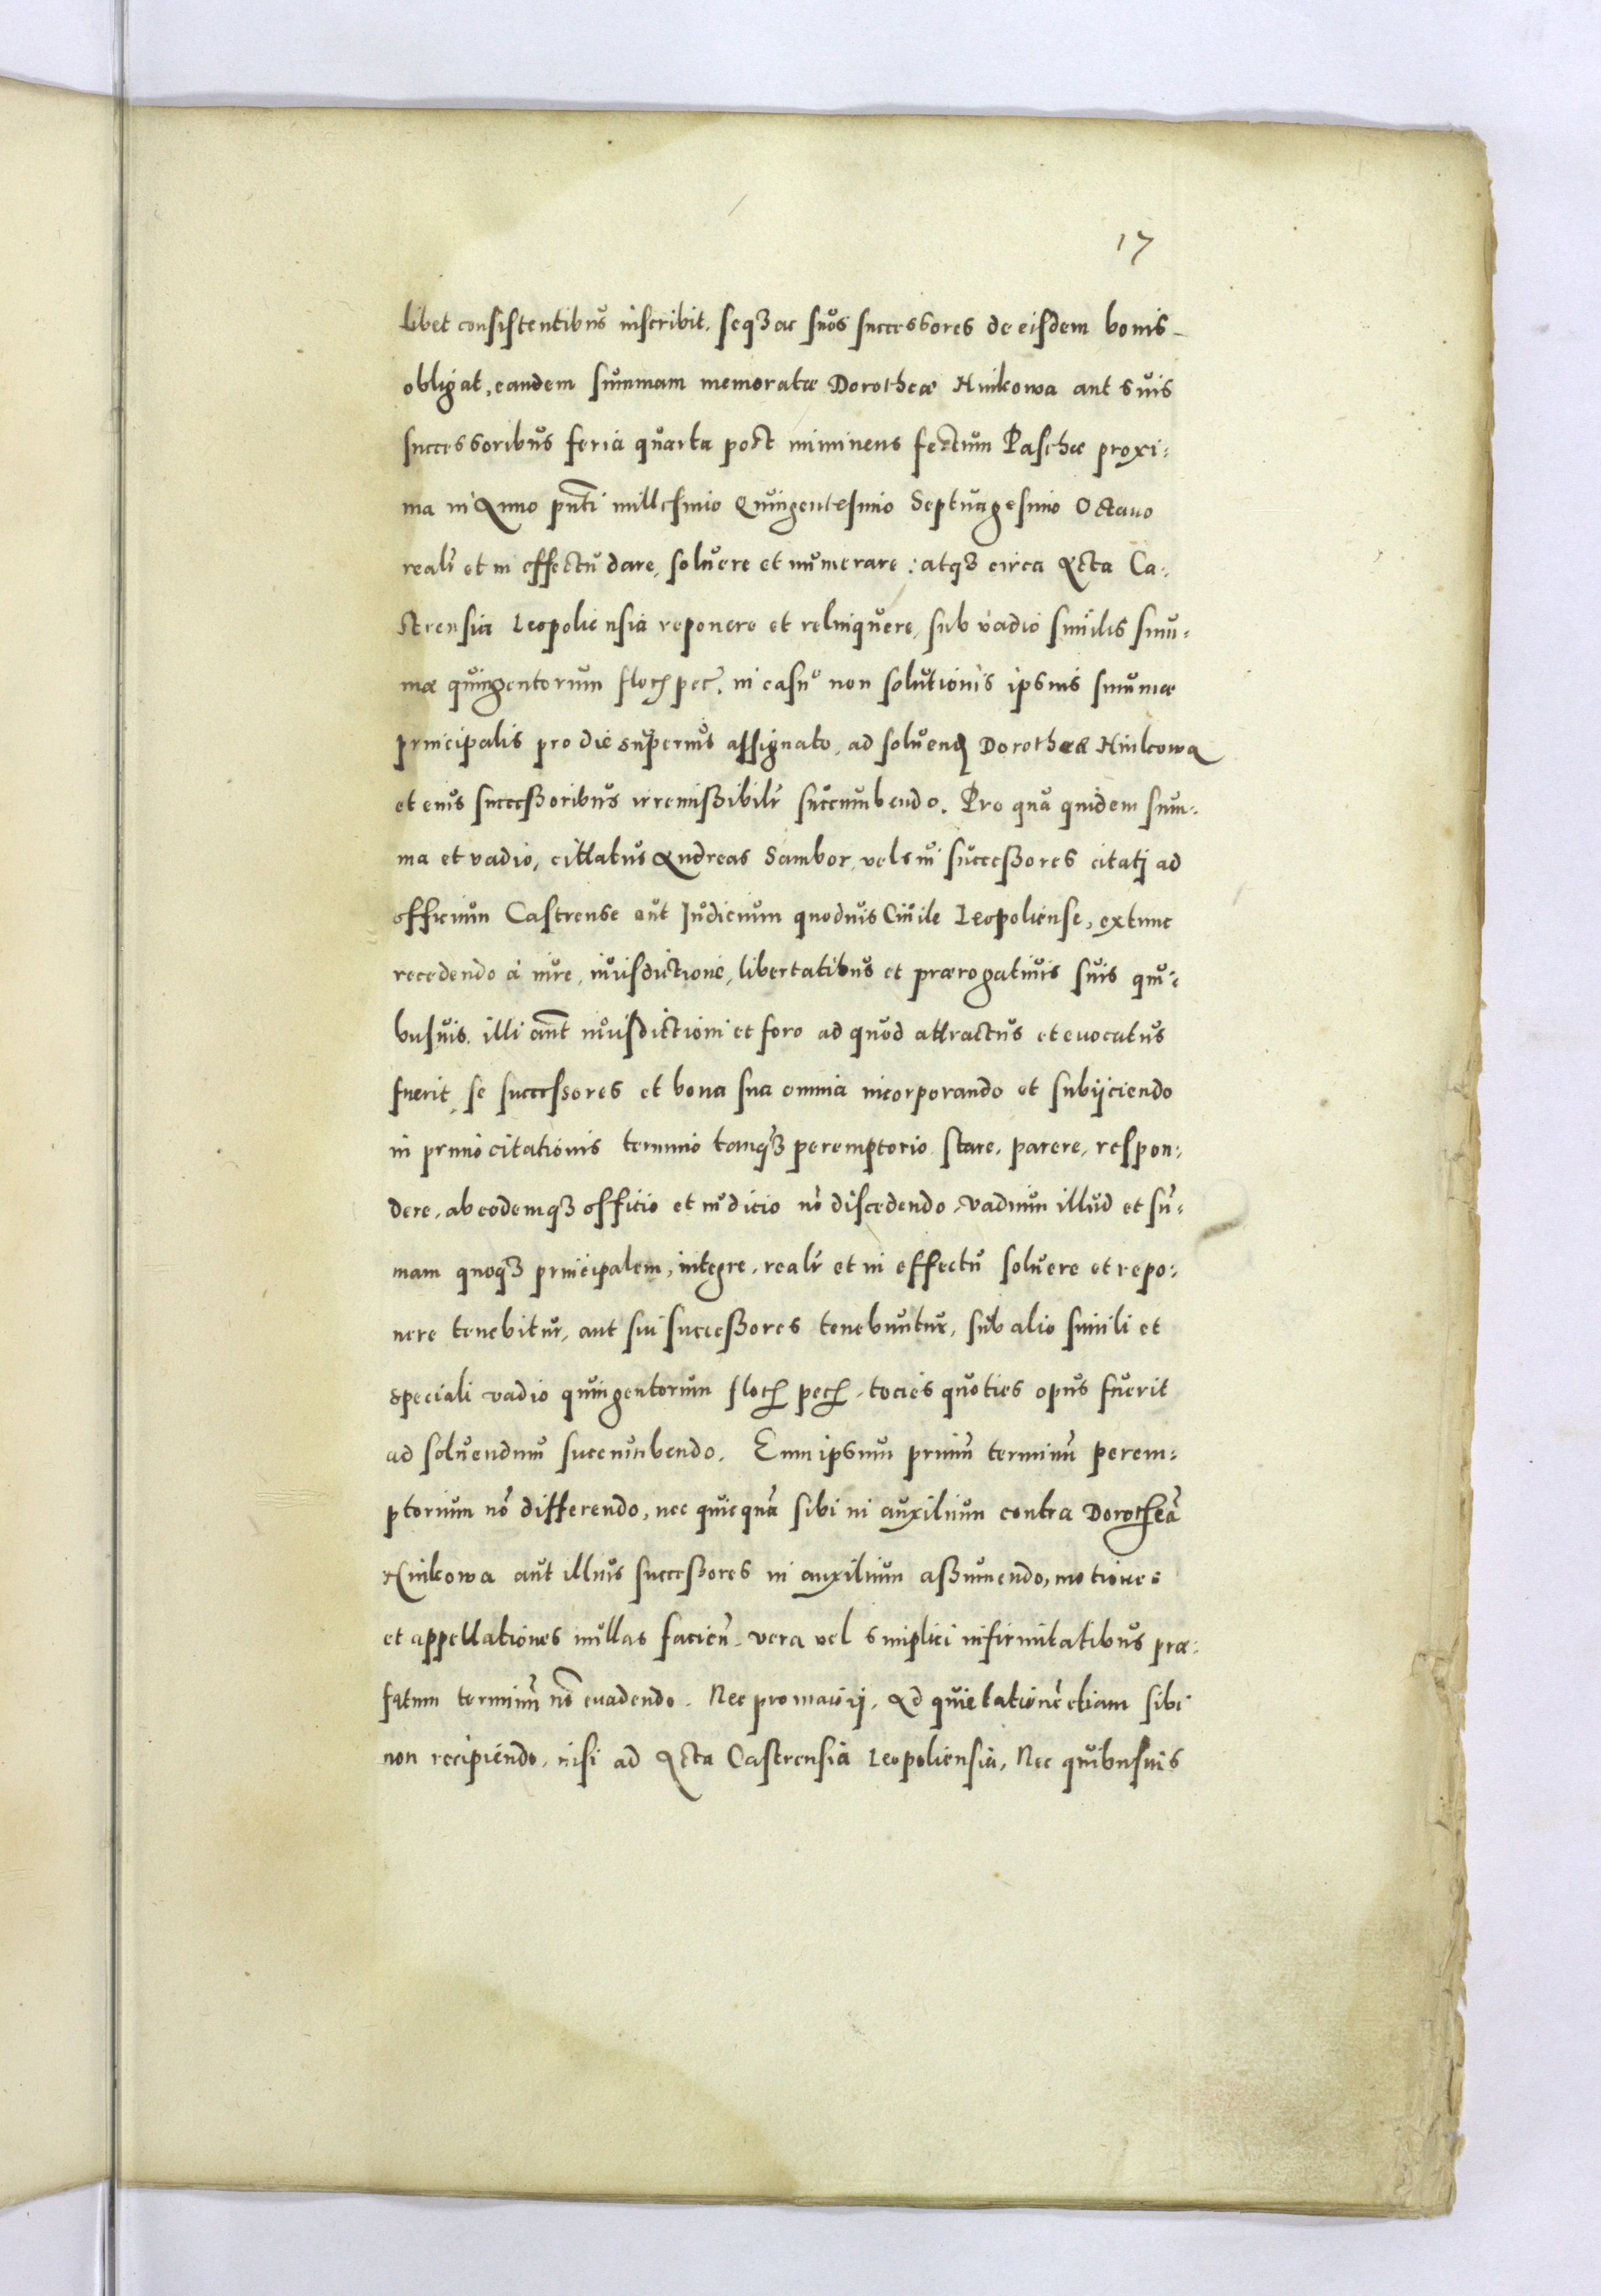 17
libet consistentibus inscribit, seqꝫ ac suos successores de eisdem bonis
obligat, eandem summam memoratæ Dorotheæ Hinkowa aut suis
successoribus feria quarta post imminens festum Paschæ proxi:
ma in Anno pn̄ti millesimo Quingentesimo Septuagesimo Octauo
realr̄ et in effectu dare, soluere et numerare: atqꝫ circa Acta Ca:
strensia Leopoliensia reponere et relinquere, sub vadio similis sum̄:
mæ quingentorum floꝝ pec̄, in casu non solutionis ipsius sum̄mæ
principalis pro die superius assignato, ad soluenđ Dorotheæ Hinkowa
et eius successoribus irremissibilr̄ succumbendo. Pro qua quidem sum:
ma et vadio, cittatus Andreas Sambor, vel sui successores citatj ad
officium Castrense aut Judicium quoduis Ciuile Leopoliense, extunc
recedendo a iure, iurisdictione, libertatibus et prærogatiuis suis qui:
busuis, illi aūt iurisdictioni et foro ad quod attractus et euocatus
fuerit, se successores et bona sua omnia incorporando et subijciendo
in primo citationis termino tanqꝫ peremptorio stare, parere, respon:
dere, ab eodemqꝫ officio et iudicio nō discedendo, vadium illud et sū:
mam quoqꝫ principalem, integre, realr̄ et in effectu soluere et repo:
nere tenebitur, aut sui successores tenebuntur, sub alio simili et
speciali vadio quingentorum floꝝ pecꝝ, tocies quoties opus fuerit
ad soluendum succumbendo. Eum ipsum primū terminū perem:
ptorium nō differendo, nec quicquā sibi in auxilium contra Dorotheā
Hinkowa aut illius successores in auxilium assumendo, motiones
et appellationes nullas facien̄, vera vel simplici infirmitatibus præ:
fatum terminū nō euadendo. Nec pro maiorj. Ad quietationē etiam sibi
non recipiendo, nisi ad Acta Castrensia Leopoliensia, Nec quibusuis